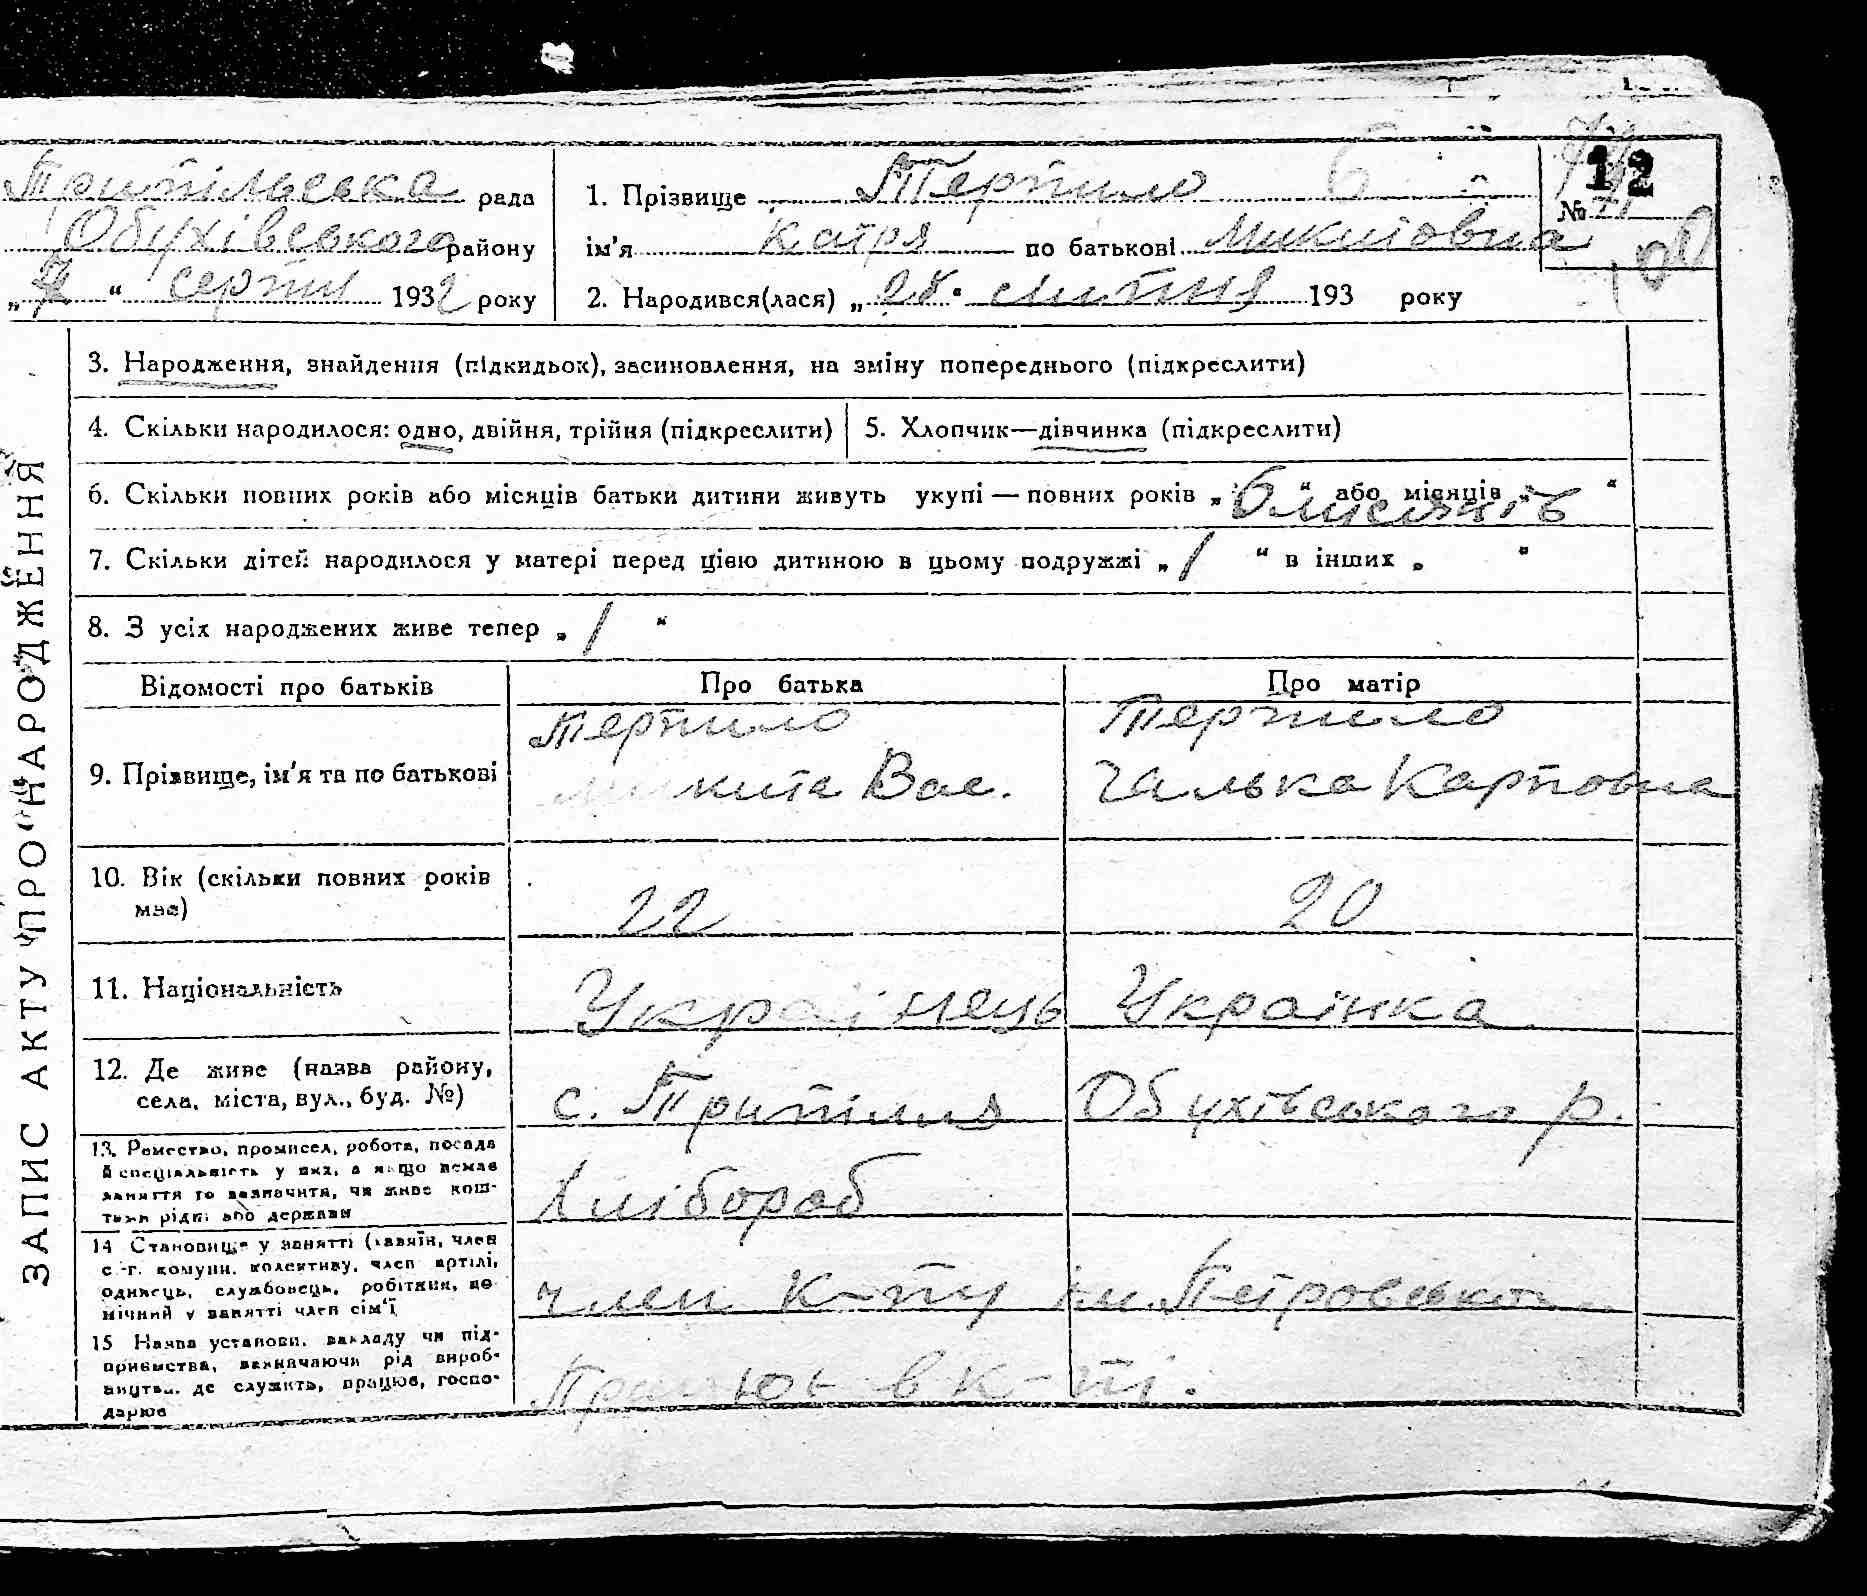 Трипільська рада
Обухівського району
„7“ серпня 1932 року
1. Прізвище Терпило
ім’я Катря по батькові Микитовна
2. Народився(лася) „28“ липня 193 року
12
№
ЗАПИС АКТУ ПРО НАРОДЖЕННЯ
3. Народження, знайдення (підкидьок), засиновлення, на зміну попереднього (підкреслити)
4. Скільки народилося: одно, двійня, трійня (підкреслити)
5. Хлопчик—дівчинка (підкреслити)
6. Скільки повних років або місяців батьки дитини живуть укупі — повних років „ “ або місяців „ “
6 місяців
7. Скільки дітей народилося у матері перед цією дитиною в цьому подружжі „ / “ в інших „ “
8. З усіх народжених живе тепер „ / “
Відомості про батьків Про батька Про матір
9. Прізвище, ім’я та по батькові
Терпило
Микита Вас.
Терпило
Галька Карповна
10. Вік (скільки повних років
має)
22 20
11. Національність Українець Українка
12. Де живе (назва району,
села, міста, вул., буд. №)
с. Трипілля Обухівського р.
13. Ремество, промисел, робота, посада
й спеціяльність у них, а якщо немає
заняття то зазначити, чи живе кош-
тами рідні або держави
Хлібороб
14 Становище у занятті (хазяїн, член
с.-г. комуни, колективу, член артілі,
одинець, службовець, робітник, по-
мічний у занятті член сім’ї
член к-пу ім. Петровського
15 Назва установи, закладу чи під-
приємства, зазначаючи рід вироб-
ництва, де служить, працює, госпо-
дарює
Працює в к-пі.